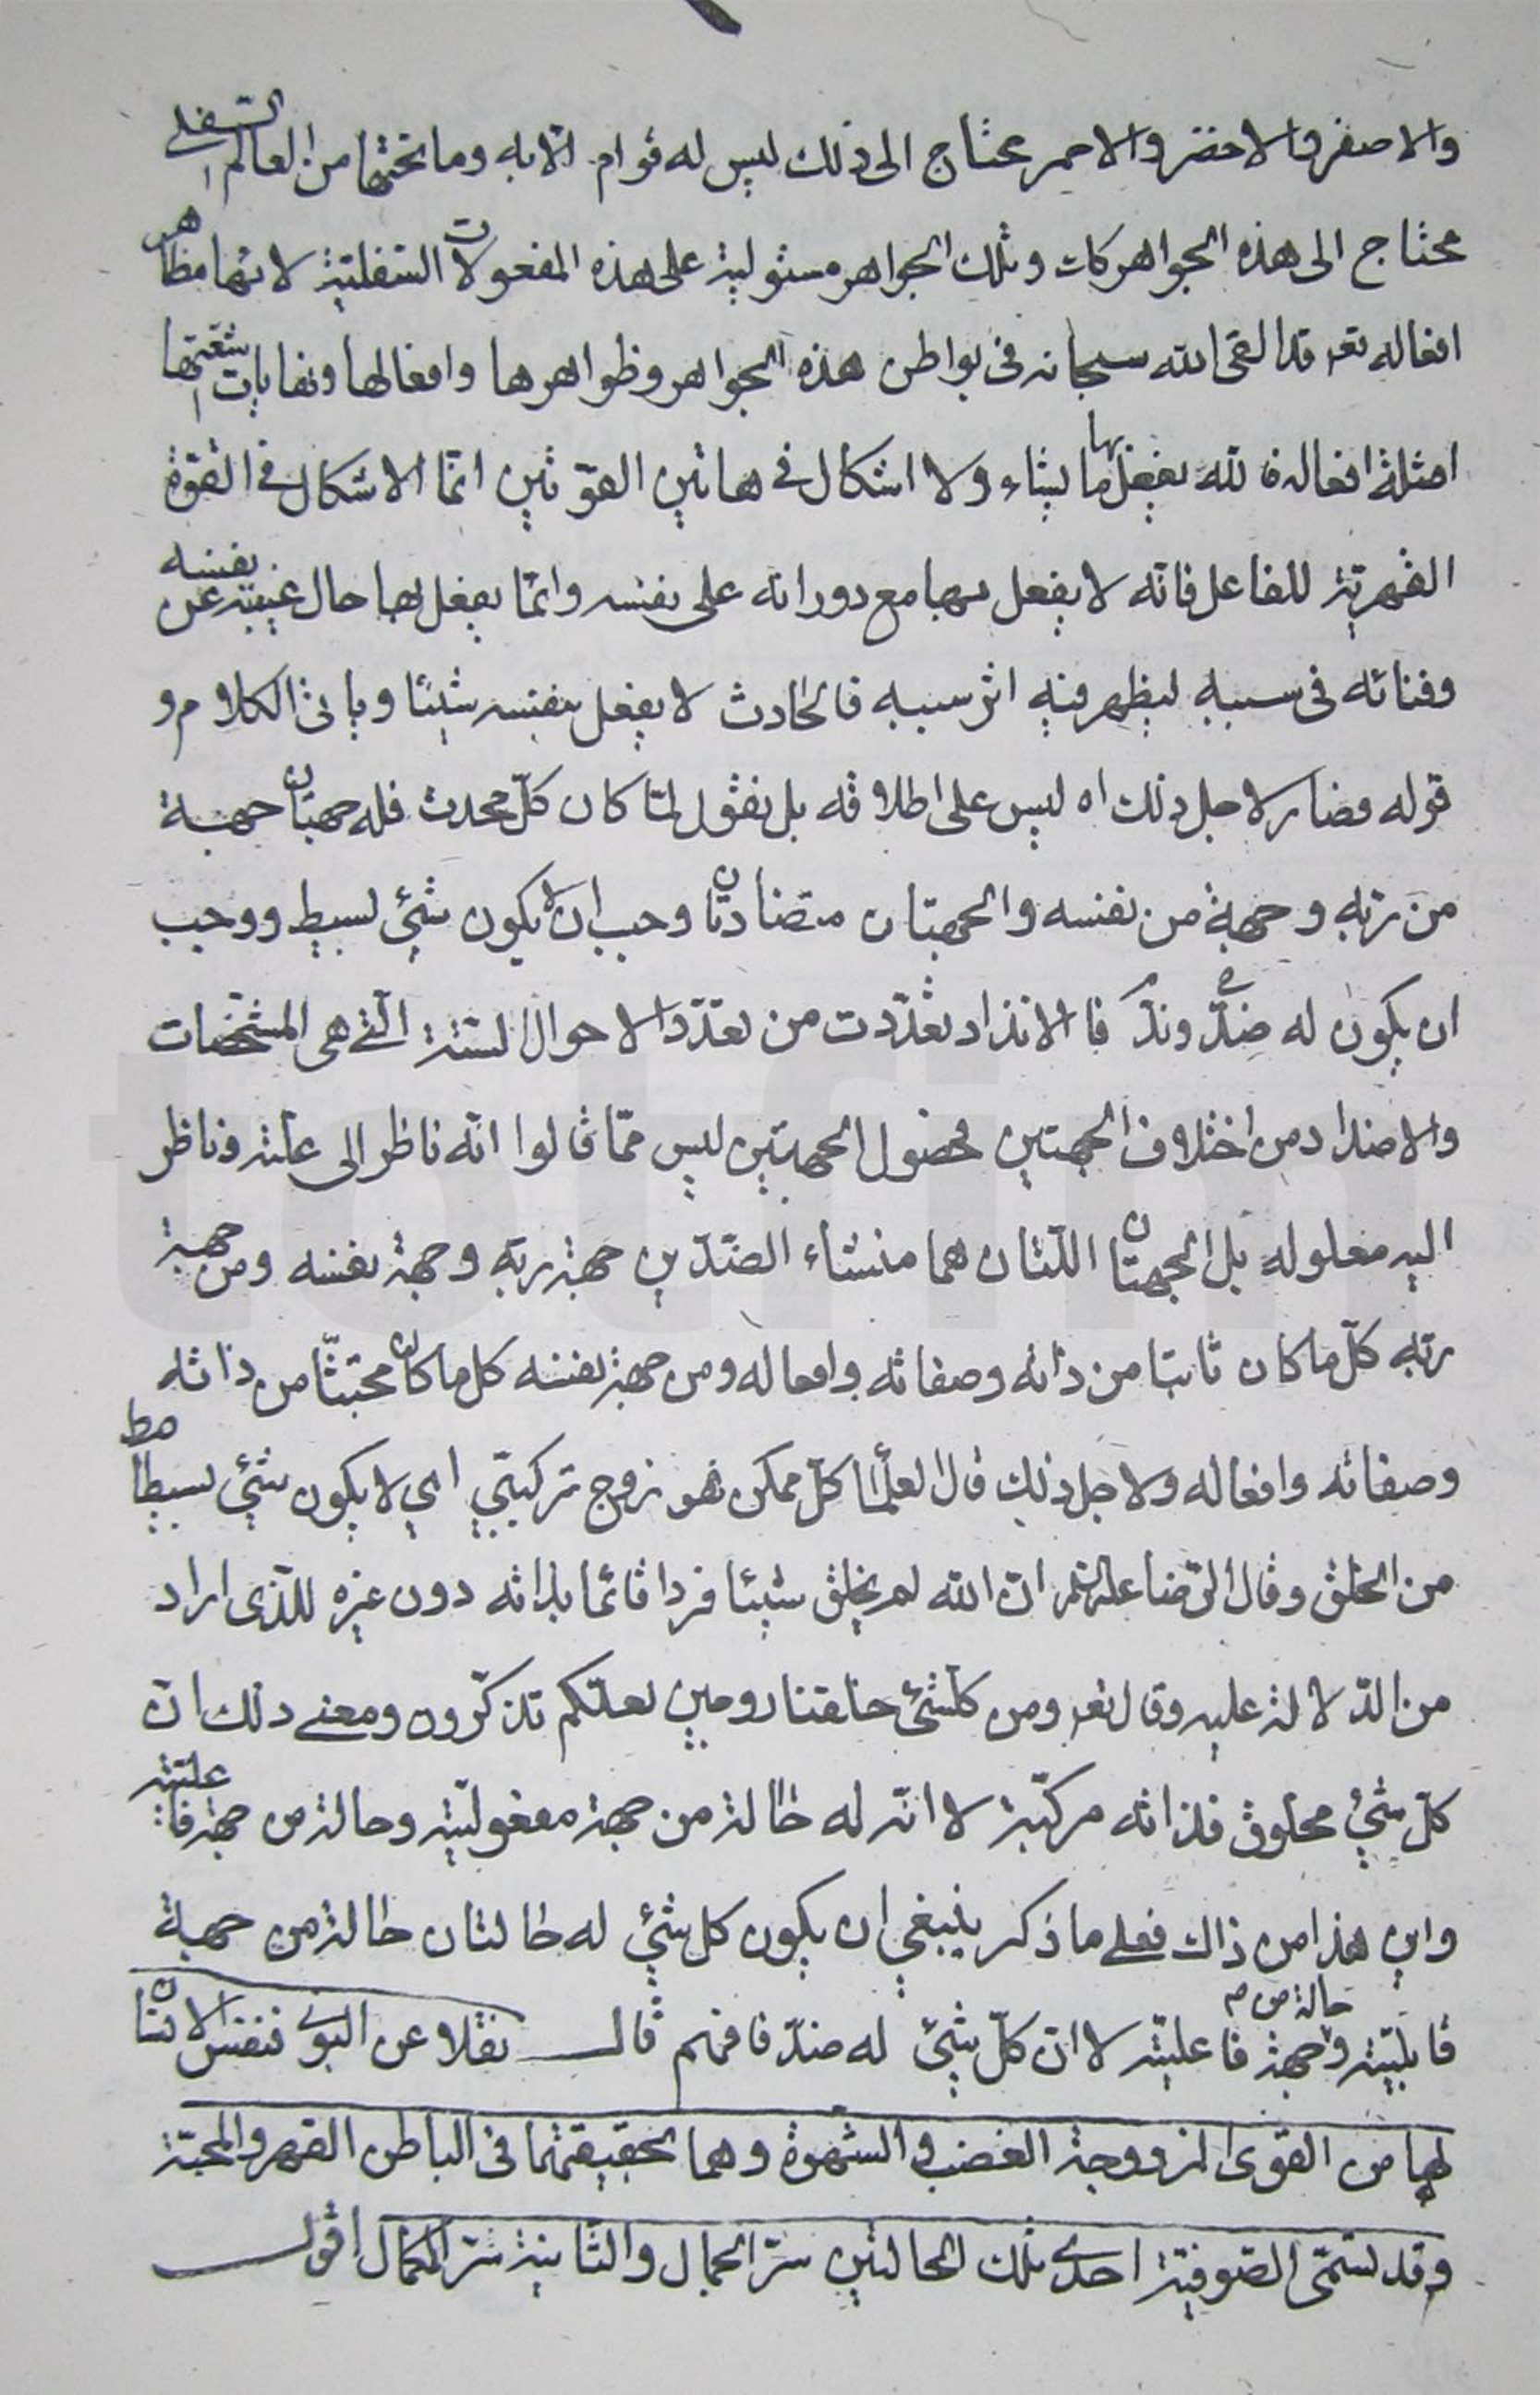 والاصفر والاخضر والاحمر محتاج الى ذلك ليس له قوام الا به وما تحتها من العالم السفلي
محتاج الى هذه الجواهر كات وتلك الجواهر مستولية على هذه المفعولات السفلية لانها مظاهر
افعاله تعر قد القى الله سبحانه فى بواطن هذه الجواهر وظواهرها وافعالها ونفايات شعتها
امثلة افعاله فالله يفعل بها ما يشاء ولا اشكال فى هاتين القوتين انما الاشكال فى القوة
القهرية للفاعل فانه لا يفعل بها مع دورانه على نفسه وانما يفعل بها حال غيبته عن نفسه
وفنائه فى سببه ليظهر فيه اثر سببه فالحادث لا يفعل بنفسه شيئا وباقى الكلام و
قوله فصار لاجل ذلك اه ليس على اطلاقه بل نقول لما كان كل محدث فله جهتان جهة
من ربه وجهة من نفسه والجهتان متضادتان وجب ان لا يكون شئ بسيط ووجب
ان يكون له ضد وند فالانداد تعددت من تعدد الاحوال الستة التى هى المشخصات
والاضداد من اختلاف الجهتين فحصول الجهتين ليس مما قالوا انه ناظر الى علته وناظر
اليه معلوله بل الجهتان اللتان هما منشاء الضدين جهة ربه وجهة نفسه ومن جهة
ربه كل ما كان ثابتا من ذاته وصفاته وافعاله ومن جهة نفسه كل ما كان مجتثا من ذاته
وصفاته وافعاله ولاجل ذلك قال العلما كل ممكن فهو زوج تركيبي اي لا يكون شئ بسيطا مط
من الخلق وقال الرضا عليه السلم ان الله لم يخلق شيئا فردا قائما بذاته دون غيره للذى اراد
من الدلالة عليه وقال تعر ومن كلشئ خلقنا زوجين لعلكم تذكرون ومعنى ذلك ان
كل شئ مخلوق فذاته مركبة لا انه له حالة من جهة مفعوليته وحالة من جهة فاعليته
واين هذا من ذاك فعلى ما ذكر ينبغي ان يكون كل شئ له حالتان حالة من جهة
قابليته وحالة من جهة فاعليته لا ان كل شئ له ضد فافهم قال نقلا عن البوني فنفس الانسان
لها من القوى المزدوجة الغضب والشهوة وهما بحقيقتهما فى الباطن القهر والمحبة
وقد تسمى الصوفية احدى تلك الحالتين سر الجمال والثانية سر الكمال اقول